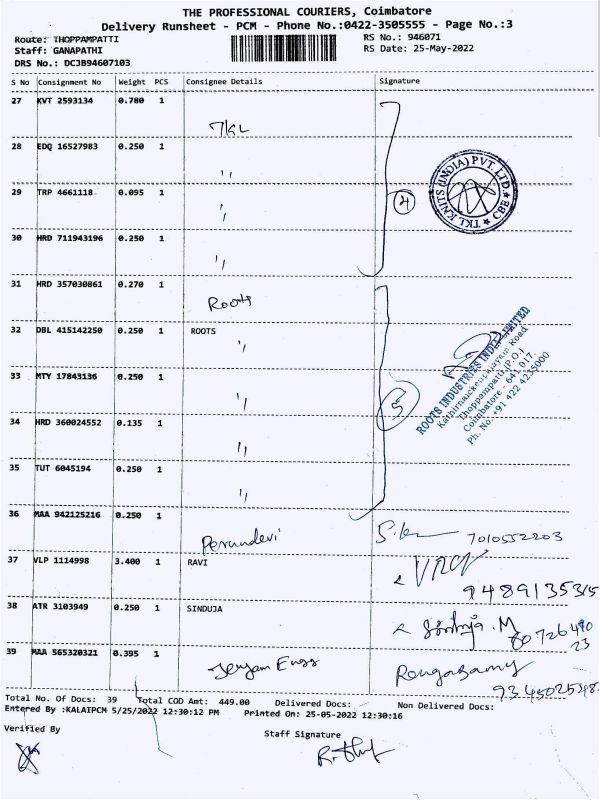 THE PROFESSIONAL COURIERS, Coimbatore
Delivery Runsheet - PCM - Phone No.:0422-3505555 - Page No.:3
Route: THOPPAMPATTI
RS No.: 946071
Staff: GANAPATHI
RS Date: 25-May-2022
DRS No.: DCJB94607103
S No Consignment No Weight PCS Consignee Details Signature
27 KVT 2593134 0.780 1
TKL
28 EDQ 16527983 0.250 1
"
29 TRP 4661118 0.095 1
"
4
TKL KNITS (INDIA) PVT. LTD. ★ CBE ★
30 HRD 711943196 0.250 1
"
31 HRD 357030861 0.270 1
Roots
32 DBL 415142250 0.250 1 ROOTS
"
33 MTY 17843136 0.250 1
"
5
ROOTS INDUSTRIES INDIA LIMITED
Thoppampatti (P.O.)
Coimbatore - 641 017.
Ph. No. +91 422 4235000
34 HRD 360024552 0.135 1
"
35 TUT 6045194 0.250 1
"
36 MAA 942125216 0.250 1
Perundevi 7010552203
37 VLP 1114998 3.400 1 RAVI
9489135315
38 ATR 3103949 0.250 1 SINDUJA
Sindhuja.M
80726490
23
39 MAA 565320321 0.395 1
Rengasamy
Total No. Of Docs: 39 Total COD Amt: 449.00 Delivered Docs: Non Delivered Docs:
Entered By :KALAIPCM 5/25/2022 12:30:12 PM Printed On: 25-05-2022 12:30:16
Verified By
Staff Signature